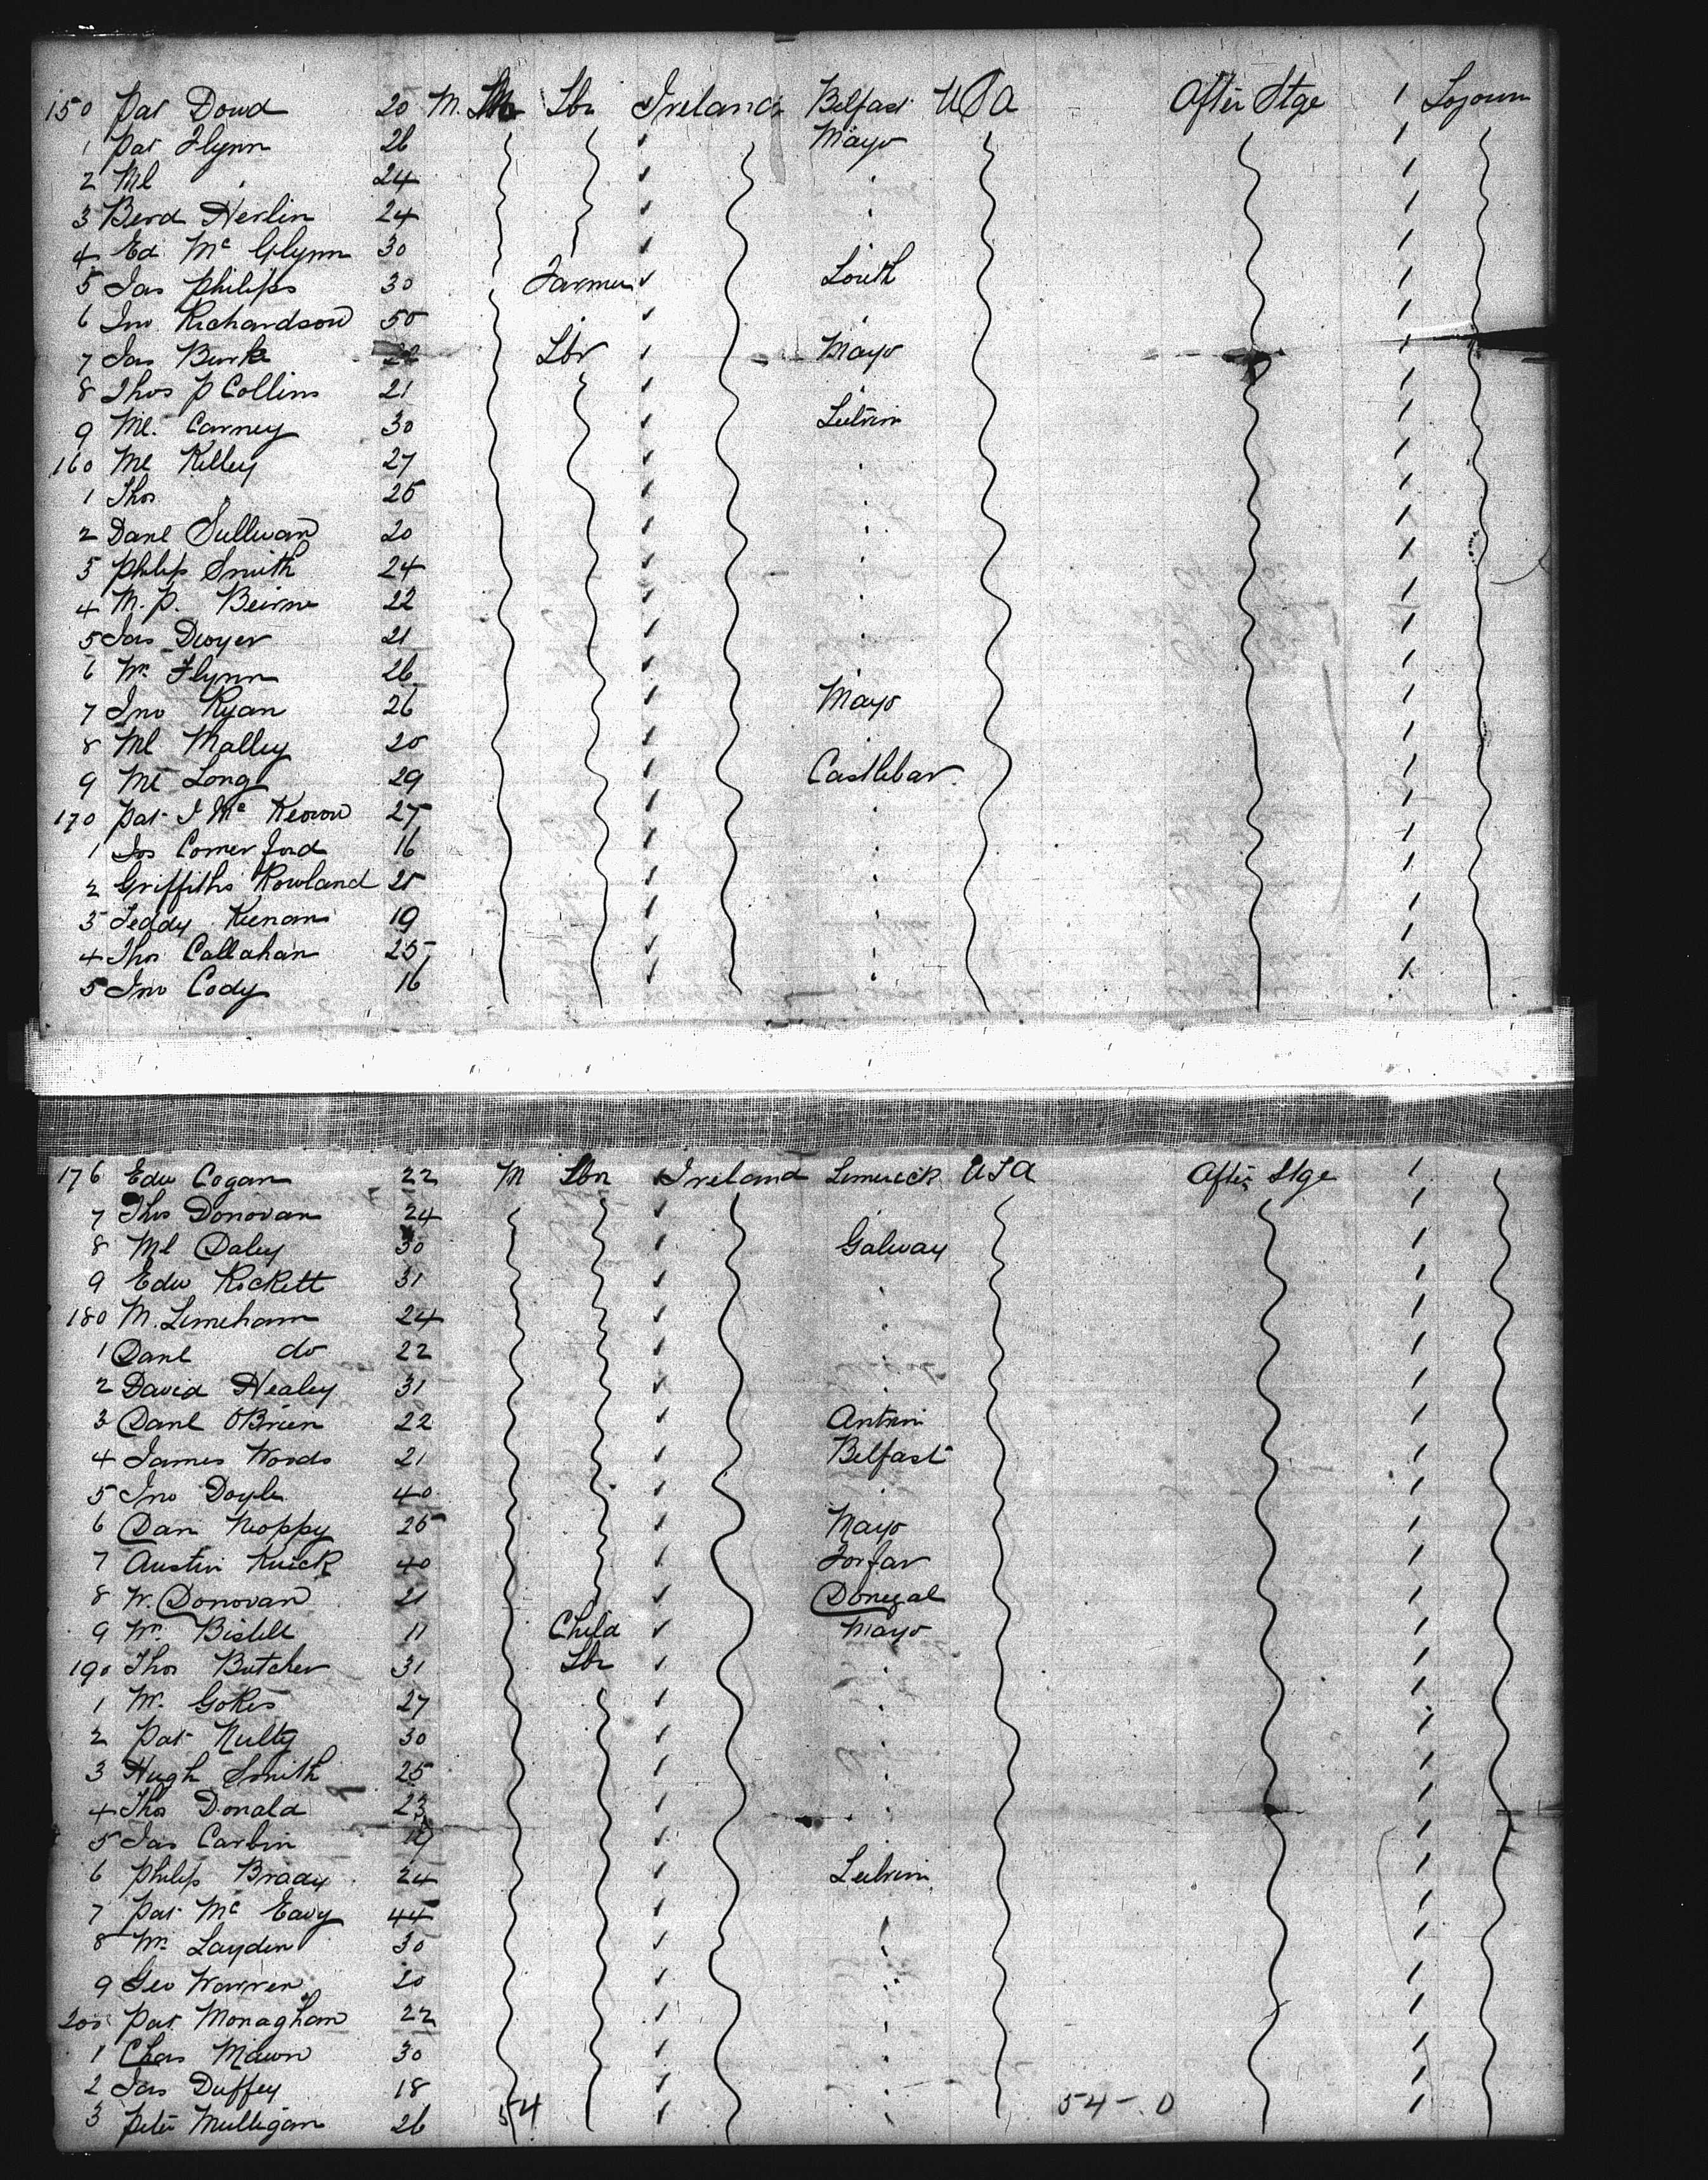 150 Pat Dowd 20 M. Lbr Ireland Belfast USA After Stge 1 Sojourn
1 Pat Flynn 26 Mayo 1
2 Ml " 24 " 1
3 Berd Herlin 24 " 1
4 Ed Mc Glynn 30 " 1
5 Jas Philips 30 Farmer Louth 1
6 Jno Richardson 50 " 1
7 Jas Burke Lbr Mayo 1
8 Thos P Collins 21 " 1
9 Ml. Carney 30 Leitrim 1
160 Ml Kelley 27 " 1
1 Thos 25 " 1
2 Danl Sullivan 20 " 1
3 Philip Smith 24 " 1
4 M. P. Beirne 22 " 1
5 Jas Dwyer 21 " 1
6 Wm Flynn 26 " 1
7 Jno Ryan 26 Mayo 1
8 Ml Malley 20 " 1
9 Ml Long 29 Castlebar 1
170 Pat J Mc Keown 27 " 1
1 Jos Comerford 16 " 1
2 Griffiths Rowland 25 " 1
3 Teddy Keenan 19 " 1
4 Thos Callahan 25 " 1
5 Jno Cody 16 " 1
176 Edw Cogan 22 M Lbr Ireland Limerick USA After Stge 1
7 Thos Donovan 24 " 1
8 Ml Daley 30 Galway 1
9 Edw Rockett 31 " 1
180 M. Limeham 24 " 1
1 Danl do 22 " 1
2 David Healey 31 " 1
3 Danl OBrien 22 Antrim 1
4 James Woods 21 Belfast 1
5 Jno Doyle 40 " 1
6 Dan Noppy 25 Mayo 1
7 Austin Kuick 40 Forfar 1
8 W. Donovan 21 Donegal 1
9 Wm Bistell 11 Child Mayo 1
190 Thos Butcher 31 Lbr " 1
1 W. Gokes 27 " 1
2 Pat Nulty 30 " 1
3 Hugh Smith 25 " 1
4 Thos Donald 23 " 1
5 Jas Carbin 19 " 1
6 Philip Brady 24 Leitrim 1
7 Pat Mc Eavy 44 " 1
8 Wm Layden 30 " 1
9 Geo Warren 20 " 1
200 Pat Monagham 22 " 1
1 Chas Mawn 30 " 1
2 Jas Duffey 18 " 1
3 Peter Mulligan 26 54 " 54-.0 1